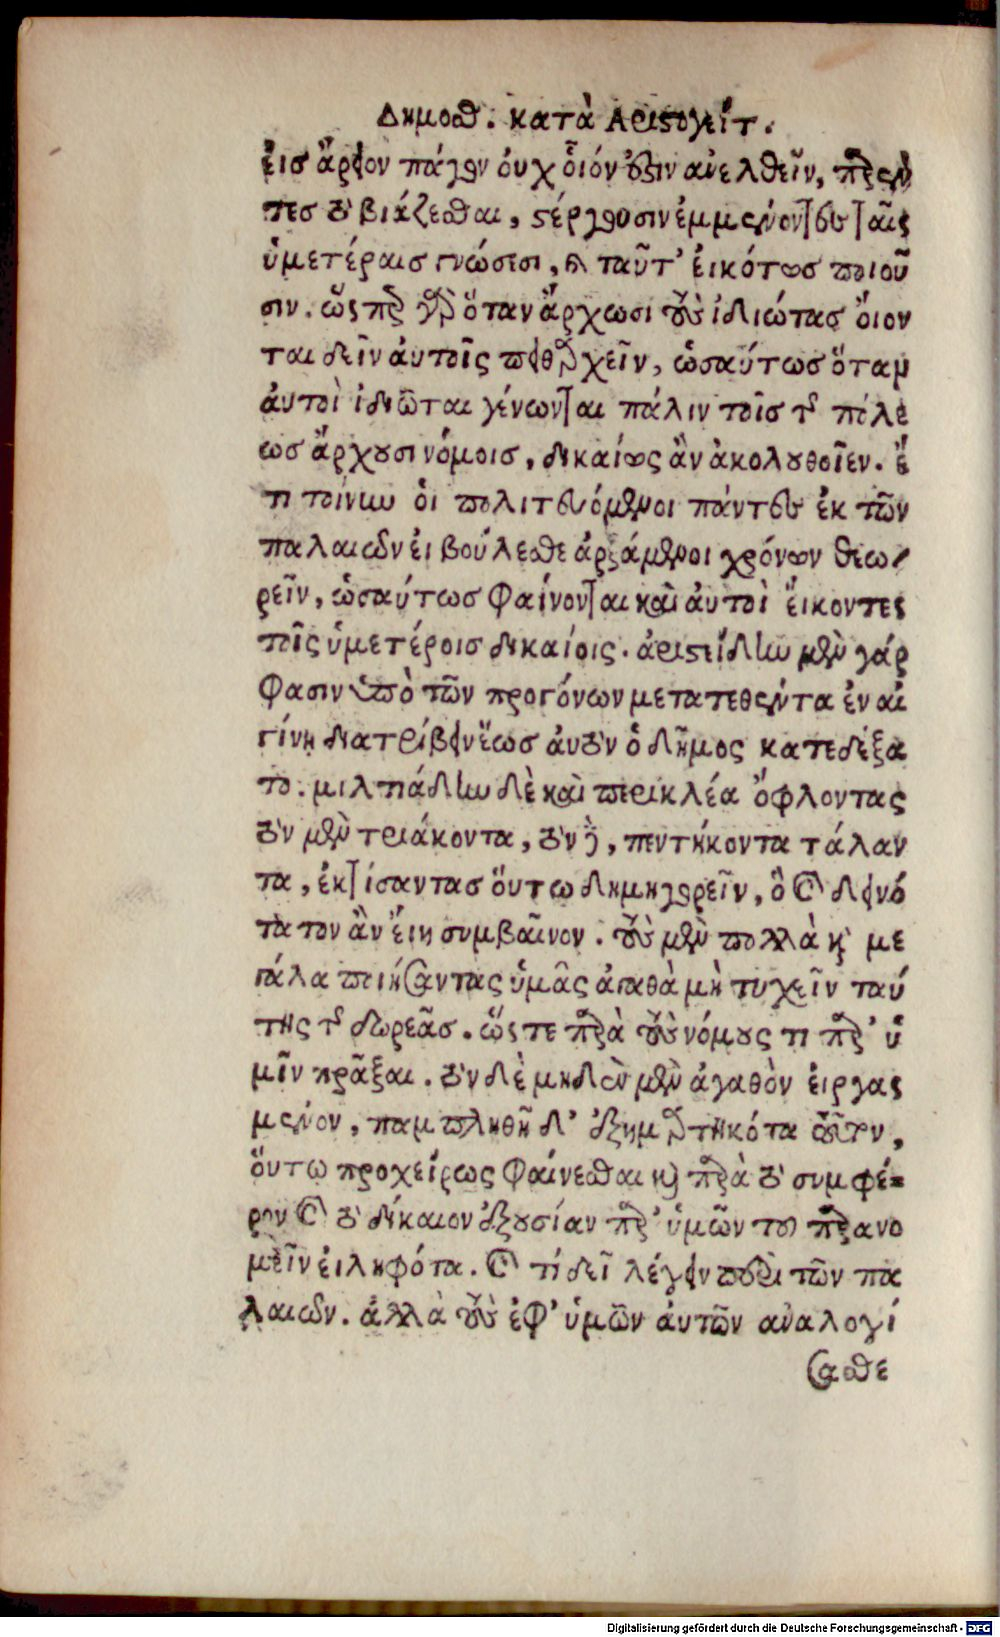 Δημοσθ. κατὰ Αριστογείτ.
ἐισ ἄρειον πάγον ὀυχ ὁῖόν ἐστιν ἀνελθεῖν, παρέν
τεσ τὸ βιάζεσθαι, στέργουσιν ἐμμένοντες ταῖς
ὑμετέραισ γνώσεσι, καὶ ταῦτ’ ἐικότωσ ποιοῦ
σιν. ὥςπερ γὰρ ὅταν ἄρχωσι τοὺς ἰδιώτασ ὄιον
ται δεῖν ἀυτοῖς πειθαρχεῖν, ὡσαύτωσ ὅταμ
ἀυτοὶ ἰδιῶται γένωνται πάλιν τοῖσ τῆς πόλε
ωσ ἄρχουσι νόμοισ, δικαίως ἂν ἀκολουθοῖεν. ἔ
τι τοίνυν ὁι πολιτευόμενοι πάντες ἐκ τῶν
παλαιῶν ἐι βούλεσθε ἀρξάμενοι χρόνων θεω-
ρεῖν, ὡσαύτωσ φαίνονται καὶ ἀυτοὶ ἔικοντες
τοῖς ὑμετέροισ δικαίοις. ἀριστείδην μὲν γάρ
φασιν ὑπὸ τῶν προγόνων μετατεθέντα ἐν αἰ
γίνῃ διατρίβειν ἕωσ ἀυτὸν ὁ δῆμος κατεδέξα
το. μιλτιάδην δὲ καὶ περικλέα ὄφλοντας
τὸν μὲν τριάκοντα, τὸν δὲ, πεντήκοντα τάλαν
τα, ἐκτίσαντασ ὅυτω δημηγορεῖν, ὃ καὶ δεινό
τατον ἂν ἔιη συμβαῖνον. τοὺς μὲν πολλὰ καὶ με
γάλα ποιήσαντας ὑμᾶς ἀγαθὰ μὴ τυχεῖν ταύ
της τῆς δωρεᾶσ. ὥςτε παρὰ τοὺς νόμους τι παρ’ ὑ
μῖν πρᾶξαι. τὸν δὲ μηδὲν μὲν ἀγαθὸν ἐιργας
μένον, παμπληθῆ δ’ ἐξημαρτηκότα τυχεῖν,
ὅυτω προχείρως φαίνεσθαι καὶ παρὰ τὸ συμφέ-
ρον καὶ τὸ δίκαιον ἐξουσίαν παρ’ ὑμῶν τοῦ παρανο
μεῖν ἐιληφότα. καὶ τί δεῖ λέγειν περὶ τῶν πα
λαιῶν. ἀλλὰ τοὺς ἐφ’ ὑμῶν ἀυτῶν ἀναλογί
σασθε
Digitalisierung gefördert durch die Deutsche Forschungsgemeinschaft - DFG